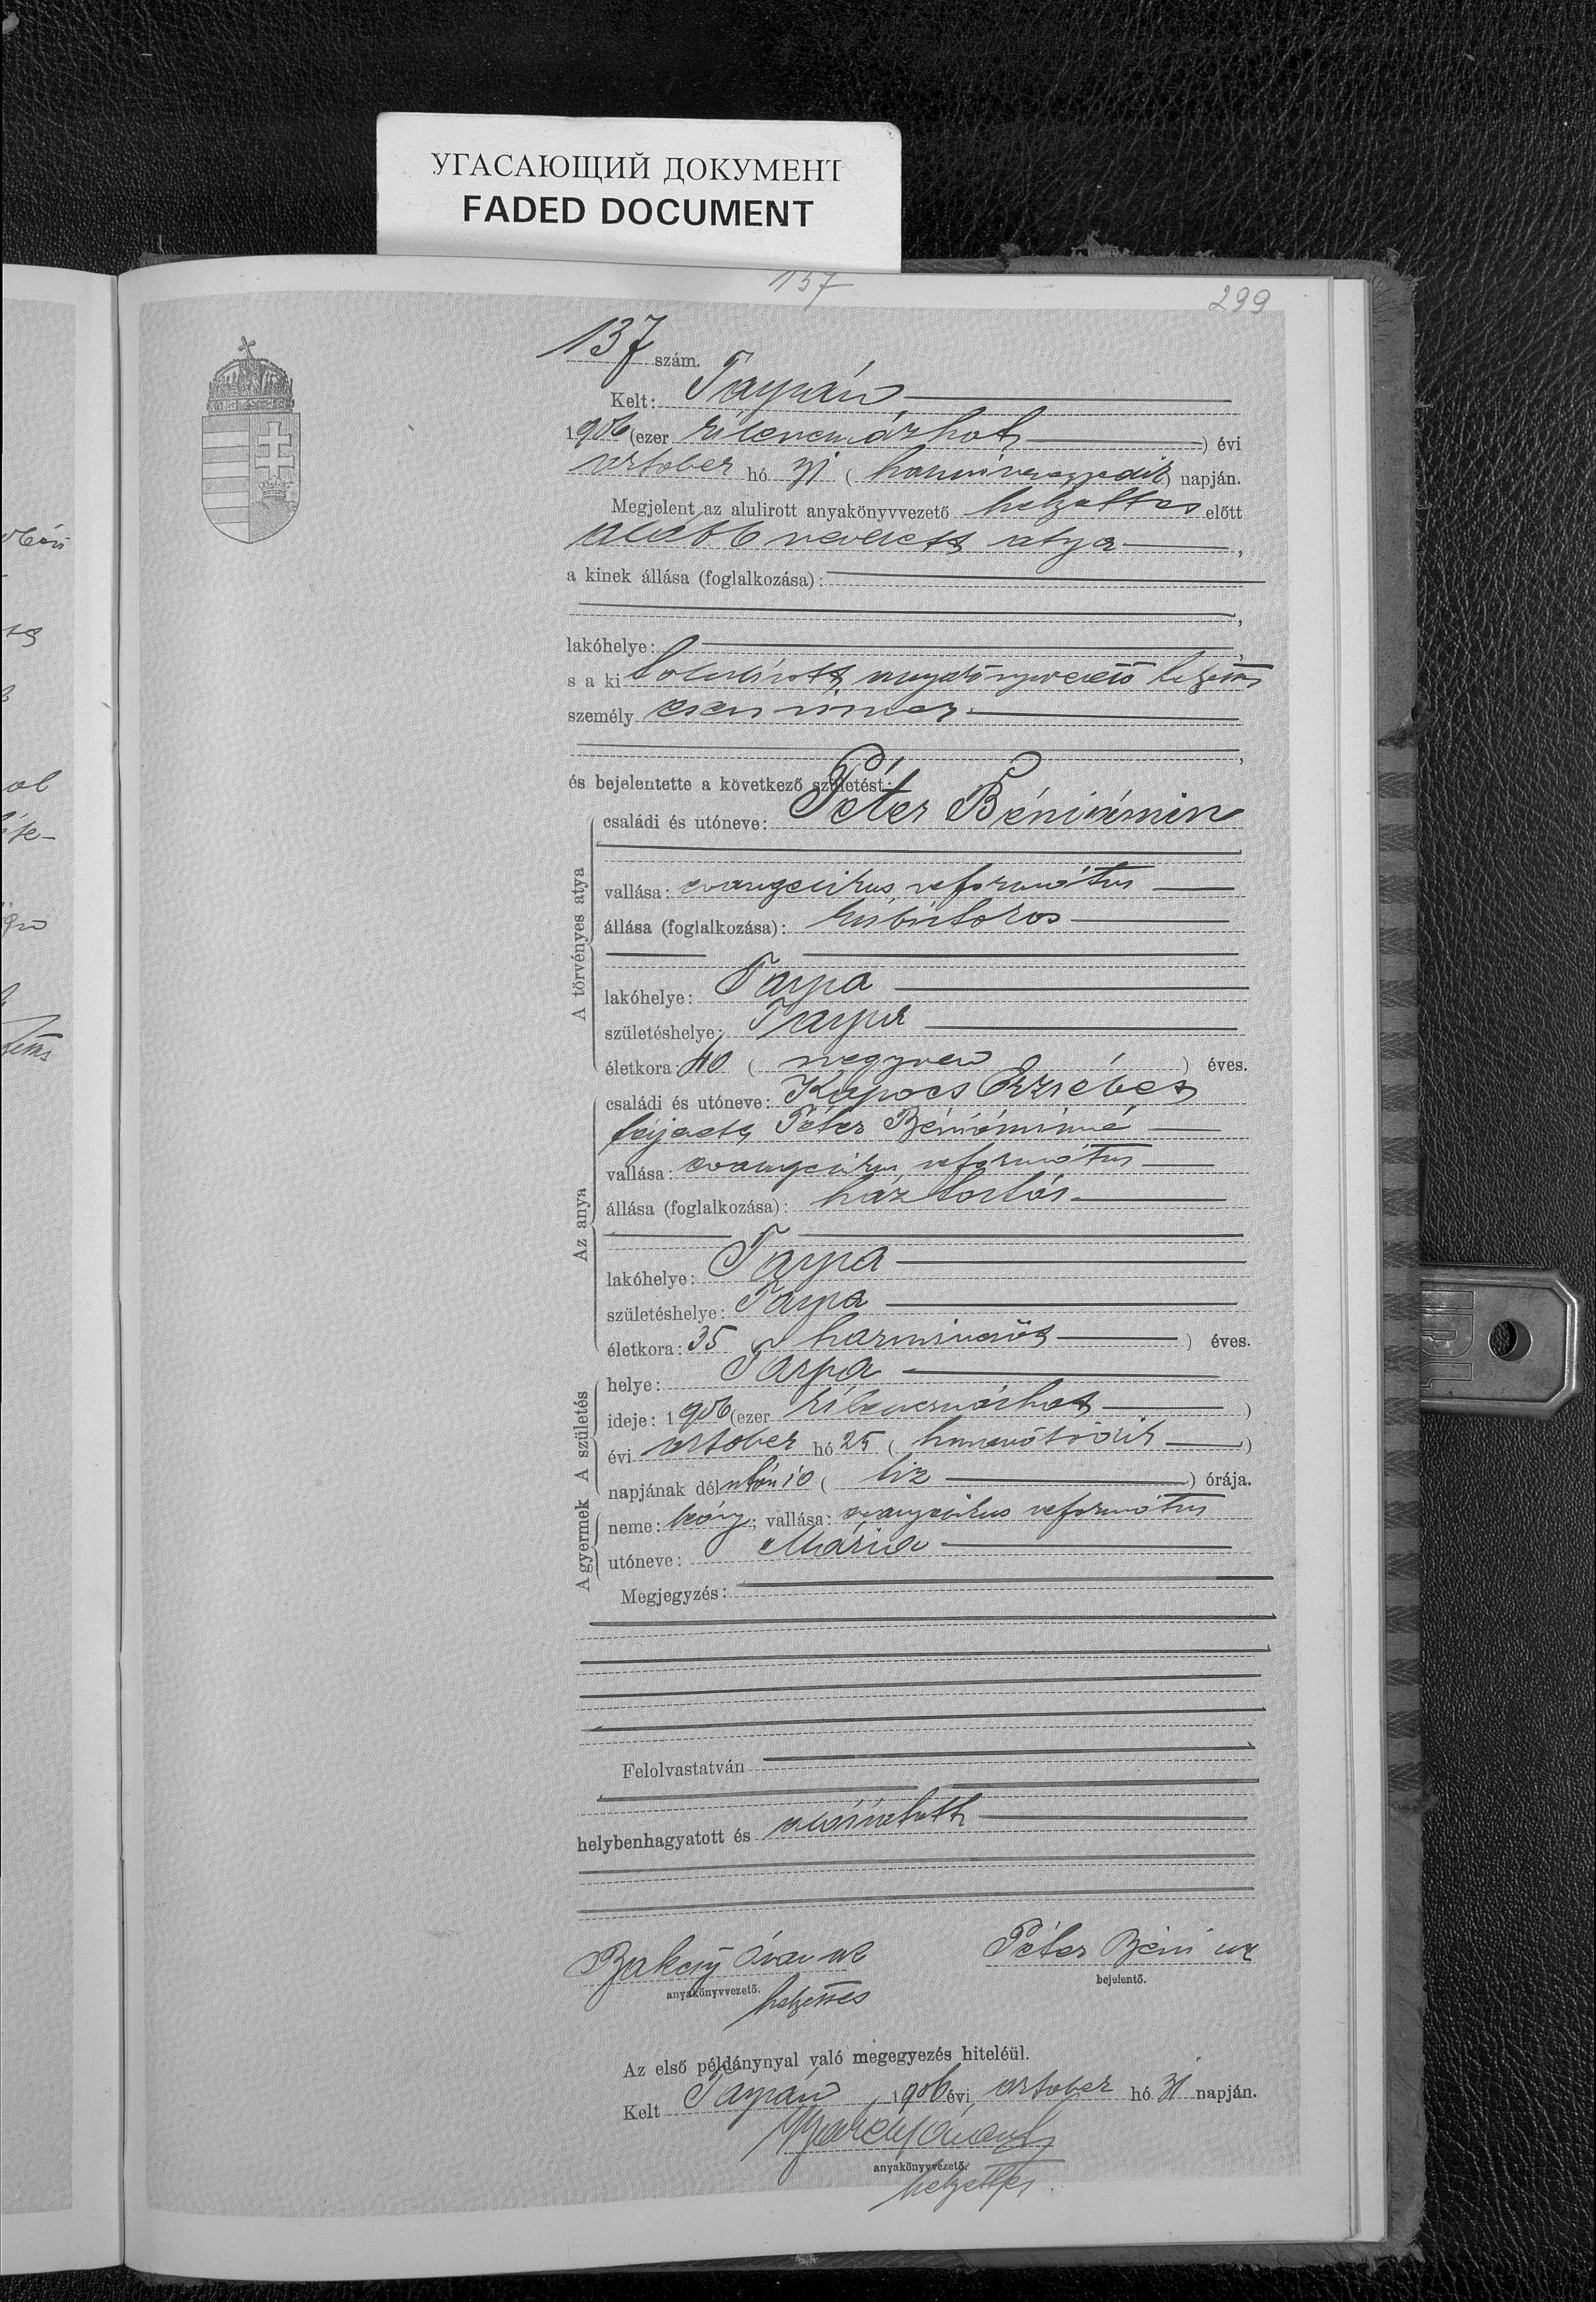 УГАСАЮЩИЙ ДОКУМЕНТ
FADED DOCUMENT
137
299
137 szám.
Kelt: Tarpán
1906 (ezer kilencszázhat) évi
október hó 31 (harminczegyedik) napján.
Megjelent az alulirott anyakönyvvezető helyettes előtt
alább nevezett atya,
a kinek állása (foglalkozása):
lakóhelye:
s a ki alulírott anyakönyvvezető helyettes
személy esen ismer
és bejelentette a következő születést:
A törvényes atya
családi és utóneve: Péter Béniámin
vallása: evangelikus református
állása (foglalkozása): kisbirtokos
lakóhelye: Tarpa
születéshelye: Tarpa
életkora: 40 (negyven) éves.
Az anya
családi és utóneve: Kapocs Erzsébet
férjezett Péter Béniáminné
vallása: evangelikus református
állása (foglalkozása): háztartás
lakóhelye: Tarpa
születéshelye: Tarpa
életkora: 35 (harminczöt) éves.
A születés
helye: Tarpa
ideje: 1906 (ezer kilencszázhat)
évi október hó 25 (huszonötödik)
napjának délután 10 (tiz) órája.
A gyermek
neme: leány; vallása: evangelikus református
utóneve: Mária
Megjegyzés:
Felolvastatván
helybenhagyatott és aláíratott
Péter Béni
anyakönyvvezető. bejelentő.
helyettes
Az első példánynyal való megegyezés hiteléül.
Kelt Tarpán 1906 évi október hó 31 napján.
anyakönyvvezető.
helyettes